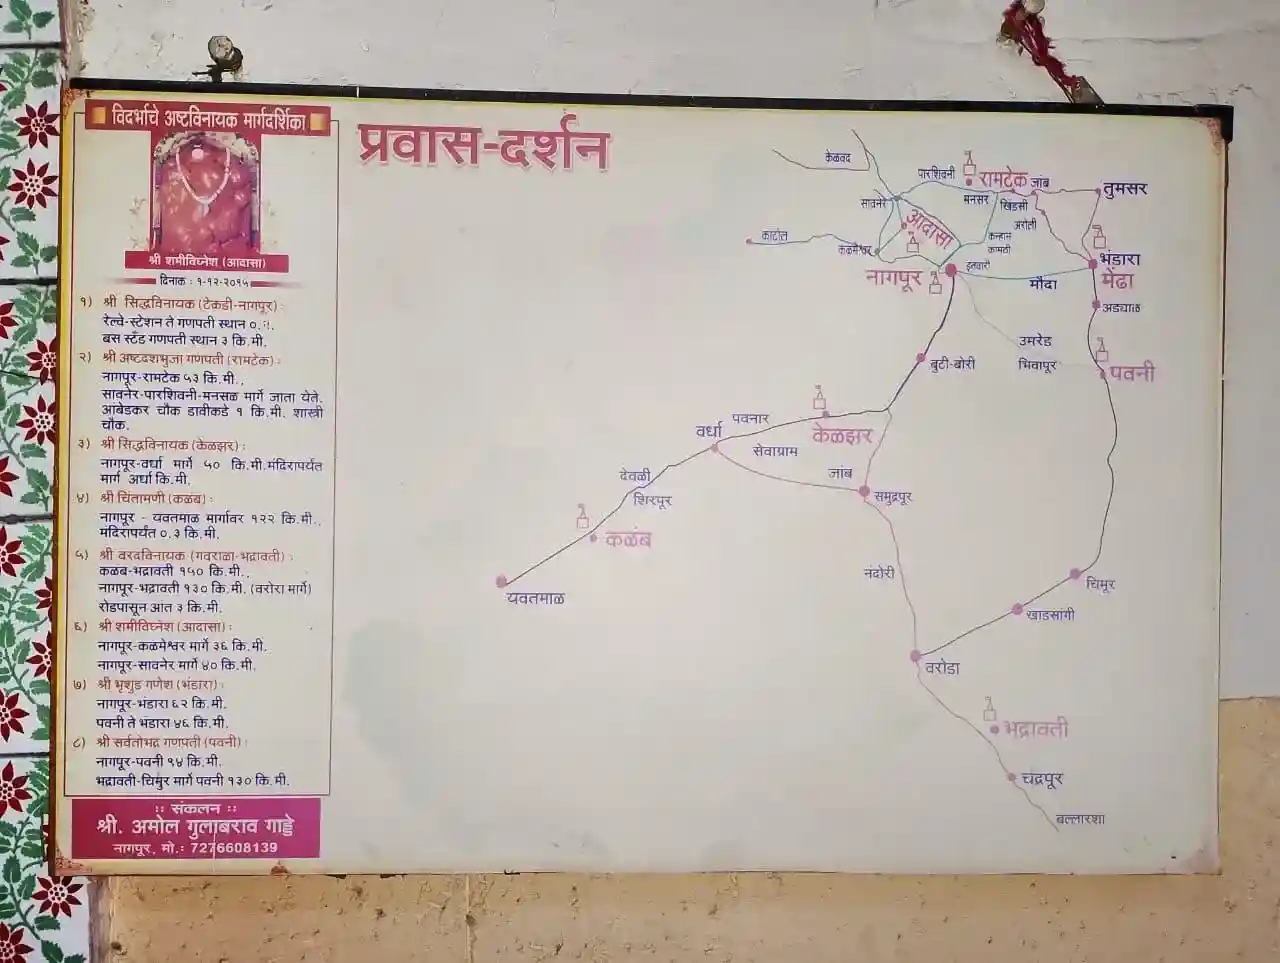 विदर्भाचे अष्टविनायक मार्गदर्शिका
श्री शमीविघ्नेश (आदासा)
दिनाक : १-१२-२०१५
१) श्री सिद्धविनायक (टेकडी-नागपूर) :
रेल्वे-स्टेशन ते गणपती स्थान ०.
बस स्टँड गणपती स्थान ३ कि.मी.
२) श्री अष्टदशभुजा गणपती (रामटेक) :
नागपूर-रामटेक ५३ कि.मी.,
सावनेर-पारशिवनी-मनसळ मार्गे जाता येते.
आबेडकर चौक डावीकडे १ कि.मी. शास्त्री
चौक.
३) श्री सिद्धविनायक (केळझर) :
नागपूर-वर्धा मार्गे ५० कि.मी.मंदिरापर्यंत
मार्ग अर्धा कि.मी.
४) श्री चिंतामणी (कळंब) :
नागपूर - यवतमाळ मार्गावर १२२ कि.मी.,
मंदिरापर्यंत ०.३ कि.मी.
५) श्री वरदविनायक (गवराळा-भद्रावती) :
कळब-भद्रावती १५० कि.मी.,
नागपूर-भद्रावती १३० कि.मी. (वरोरा मार्गे)
रोडपासून आंत ३ कि.मी.
६) श्री शमीविघ्नेश (आदासा) :
नागपूर-कळमेश्वर मार्गे ३६ कि.मी.
नागपूर-सावनेर मार्गे ४० कि.मी.
७) श्री भृशुड गणेश (भंडारा) :
नागपूर-भंडारा ६२ कि.मी.
पवनी ते भंडारा ४६ कि.मी.
८) श्री सर्वतोभद्र गणपती (पवनी) :
नागपूर-पवनी ९४ कि.मी.
भद्रावती-चिमुर मार्गे पवनी १३० कि.मी.
:: संकलन ::
श्री. अमोल गुलाबराव गाड्डे
नागपूर. मो.: 7276608139
प्रवास-दर्शन
केळवद
पारशिवनी
रामटेक
जांब
तुमसर
सावनेर
मनसर
खिंडसी
आदासा
अरोली
काटोल
कळमेश्वर
कन्हान
कामठी
इतवारी
भंडारा
नागपूर
मौदा
मेंढा
अड्याळ
उमरेड
बुटी-बोरी
भिवापूर
पवनी
पवनार
वर्धा
केळझर
सेवाग्राम
देवळी
जांब
शिरपूर
समुद्रपूर
कळंब
नंदोरी
चिमूर
यवतमाळ
खाडसांगी
वरोडा
भद्रावती
चंद्रपूर
बल्लारशा